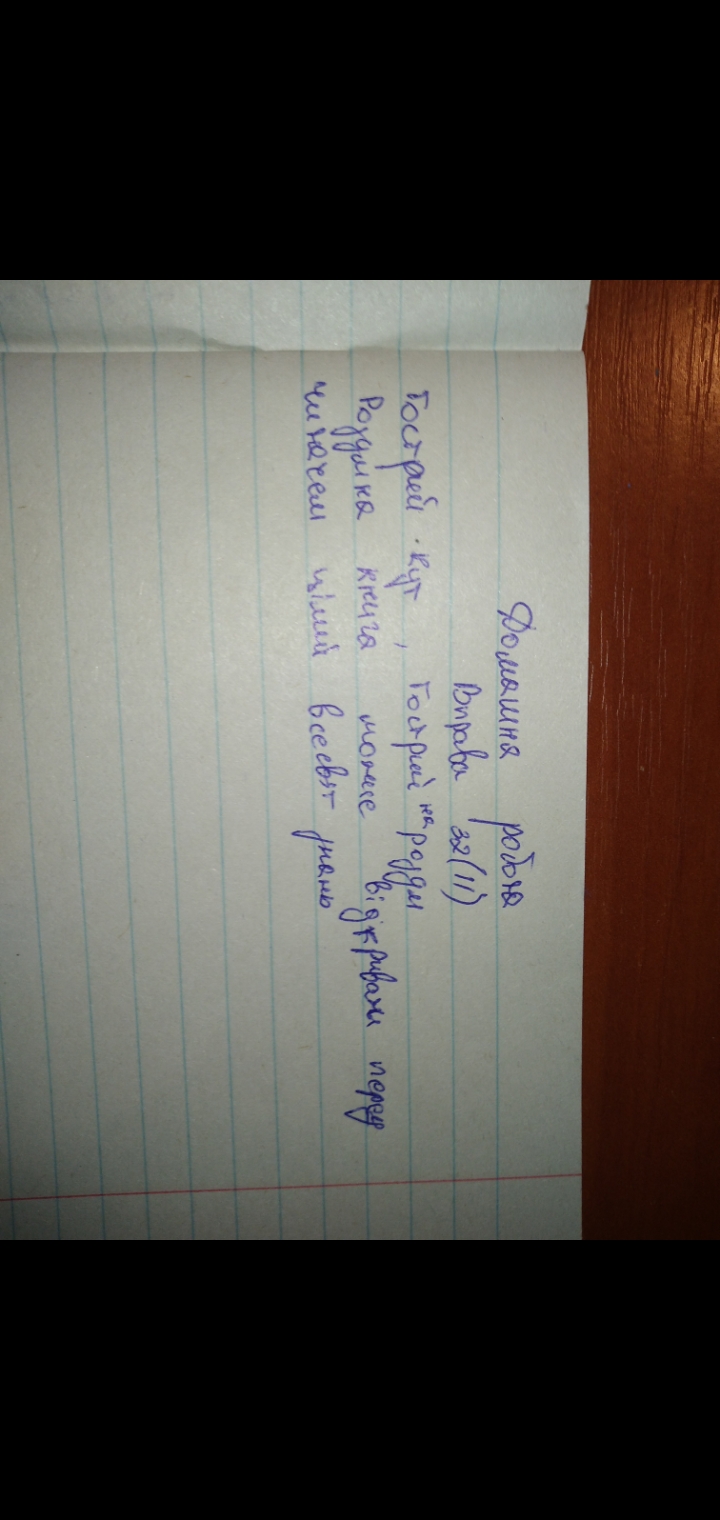 Домашня робота
Вправа 32(II)
Гострий кут, Гострий на розум
Розумна книга може відкривати перед
читачем цілий всесвіт знань